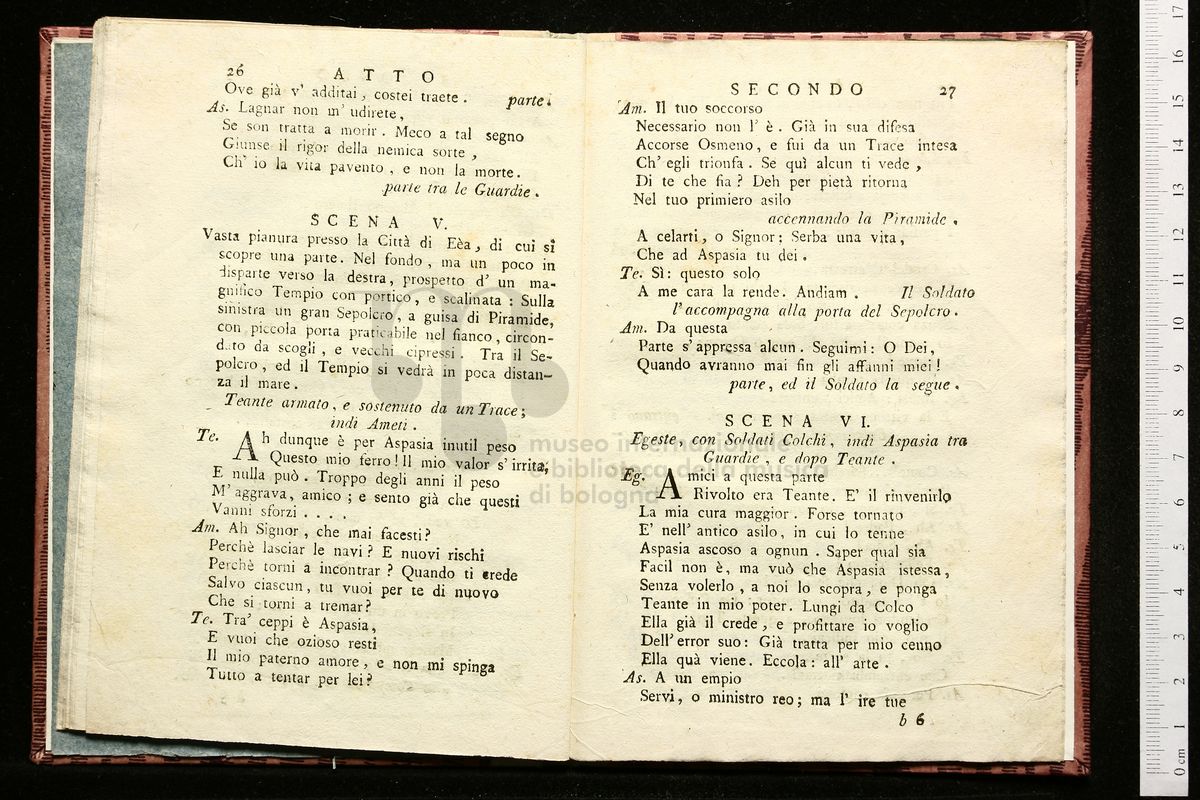 26 ATTO
Ove già v' additai, costei traete. parte.
As. Lagnar non m' udirete,
Se son tratta a morir. Meco a tal segno
Giunse il rigor della nemica sorte,
Ch' io la vita pavento, e non la morte.
parte tra le Guardie.
SCENA V.
Vasta pianura presso la Città di Eèa, di cui si
scopre una parte. Nel fondo, ma un poco in
disparte verso la destra, prospetto d' un ma-
gnifico Tempio con portico, e scalinata: Sulla
sinistra un gran Sepolcro, a guisa di Piramide,
con piccola porta praticabile nel fianco, circon-
dato da scogli, e vecchi cipressi. Tra il Se-
polcro, ed il Tempio si vedrà in poca distan-
za il mare.
Teante armato, e sostenuto da un Trace;
indi Ameti.
Te. Ah dunque è per Aspasia inutil peso
Questo mio ferro! Il mio valor s' irrita,
E nulla può. Troppo degli anni il peso
M' aggrava, amico; e sento già che questi
Vanni sforzi ....
Am. Ah Signor, che mai facesti?
Perchè lasciar le navi? E nuovi rischi
Perchè torni a incontrar? Quando ti crede
Salvo ciascun, tu vuoi per te di nuovo
Che si torni a tremar?
Te. Tra' ceppi è Aspasia,
E vuoi che ozioso resti
Il mio paterno amore, e non mi spinga
Tutto a tentar per lei?
SECONDO 27
Am. Il tuo soccorso
Necessario non l' è. Già in sua difesa
Accorse Osmeno, e fui da un Trace intesa
Ch' egli trionfa. Se quì alcun ti vede,
Di te che fia? Deh per pietà ritorna
Nel tuo primiero asilo
accennando la Piramide.
A celarti, o Signor; Serba una vita,
Che ad Aspasia tu dei.
Te. Sì: questo solo
A me cara la rende. Andiam. Il Soldato
l'accompagna alla porta del Sepolcro.
Am. Da questa
Parte s' appressa alcun. Seguimi: O Dei,
Quando avranno mai fin gli affanni miei!
parte, ed il Soldato la segue.
SCENA VI.
Egeste, con Soldati Colchi, indi Aspasia tra
Guardie, e dopo Teante.
Eg. Amici a questa parte
Rivolto era Teante. E' il rinvenirlo
La mia cura maggior. Forse tornato
E' nell' antico asilo, in cui lo tenne
Aspasia ascoso a ognun. Saper qual sia
Facil non è, ma vuò che Aspasia istessa,
Senza volerlo, a noi lo scopra, e ponga
Teante in mio poter. Lungi da Colco
Ella già il crede, e profittare io voglio
Dell' error suo: Già tratta per mio cenno
Ella quà viene. Eccola: all' arte.
As. A un empio
Servi, o ministro reo; ma l' ire tue
b 6
museo internazionale
e biblioteca della musica
di bologna
0 cm 1 2 3 4 5 6 7 8 9 10 11 12 13 14 15 16 17